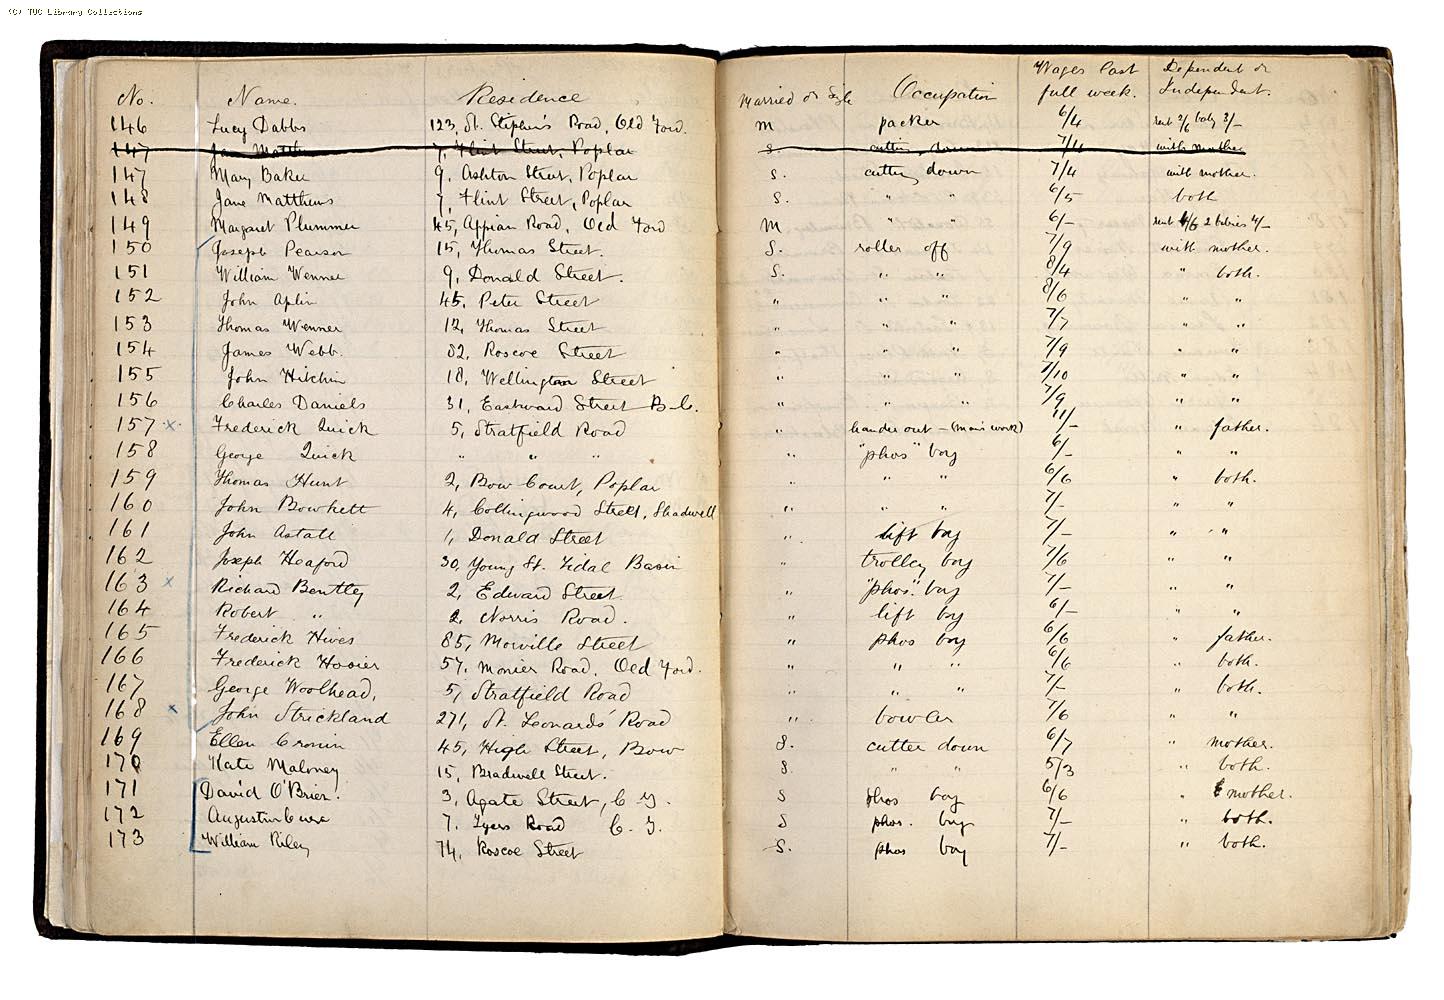 (C) TUC Library Collections
No. Name. Residence Married or Single Occupation Wages last full week. Dependent or Independent.
146 Lucy Dabbs 123, St. Stephen's Road, Old Ford. M packer 6/4 rent 3/6 baby 3/-
147 Jane Matthews 7, Flint Street, Poplar S. cutting down 7/4 with mother
147 Mary Baker 9, Ashton Street, Poplar S. cutting down 7/4 with mother.
148 Jane Matthews 7, Flint Street, Poplar S. " " 6/5 both
149 Margaret Plummer 45, Appian Road, Old Ford M " " 6/- rent 4/6 2 babies 4/-
150 Joseph Pearson 15, Thomas Street. S. roller off 7/9 with mother.
151 William Wenner 9, Donald Street. S. " " 8/4 " both.
152 John Aplin 45, Peter Street " " " 8/6 " "
153 Thomas Wenner 12, Thomas Street " " " 7/7 " "
154 James Webb. 82, Roscoe Street " " " 7/9 " "
155 John Hitchin 18, Wellington Street " " " 7/10 " "
156 Charles Daniels 31, Eastward Street B.C. " " " 7/9 " "
157 x Frederick Quick 5, Stratfield Road " hander out - (man's work) 11/- " father.
158 George Quick " " " " "phos" boy 6/- " "
159 Thomas Hunt 2, Bow Court, Poplar " " " 6/6 " both.
160 John Bowkett 4, Collingwood Street, Shadwell " " " 7/- " "
161 John Astall 1, Donald Street " lift boy 7/- " "
162 Joseph Heaford 30, Young St. Tidal Basin " trolley boy 7/6 " "
163 x Richard Bentley 2, Edward Street " "phos." boy 7/- " "
164 Robert " 2, Norris Road. " lift boy 6/- " "
165 Frederick Hives 85, Morville Street " phos boy 6/6 " father.
166 Frederick Hosier 57, Monier Road, Old Ford. " " " 6/6 " both.
167 George Woolhead, 5, Stratfield Road " " " 7/- " both.
168 x John Strickland 271, St. Leonards' Road " bowler 7/6 " "
169 Ellen Cronin 45, High Street, Bow S. cutter down 6/7 " mother.
170 Kate Maloney 15, Bradwell Street. S. " " 5/3 " both.
171 David O'Brien. 3, Agate Street, C.T. S phos boy 6/6 " mother.
172 Augustin 7, Tyers Road C.T. S phos. boy 7/- " both.
173 William Riley 74, Roscoe Street S. phos boy 7/- " both.